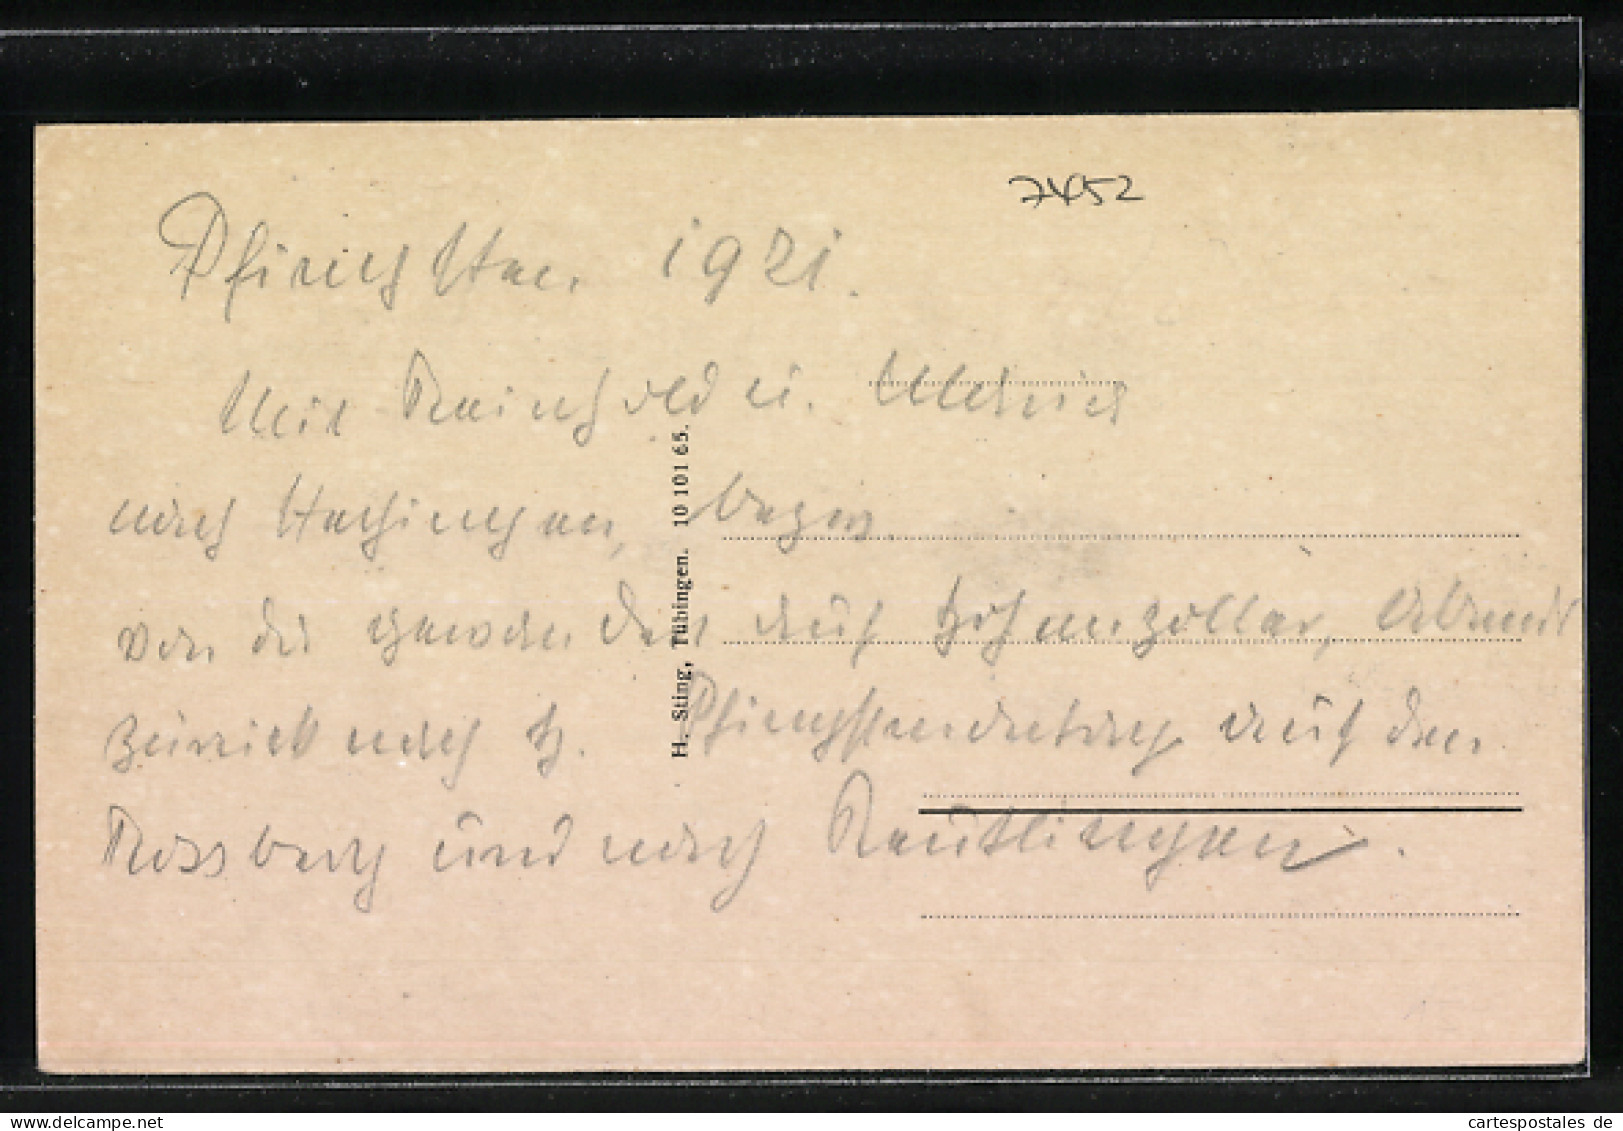 72152
Pfingsten 1921.
Mit Reinhold u.
nach Hechingen,
von da auf Hohenzollern, Abends
zurück nach H. Pfingstmontag auf den
Rossberg und nach Reutlingen.
H. Sting, Tübingen. 10 101 65.
cartespostales de
www.delcampe.net